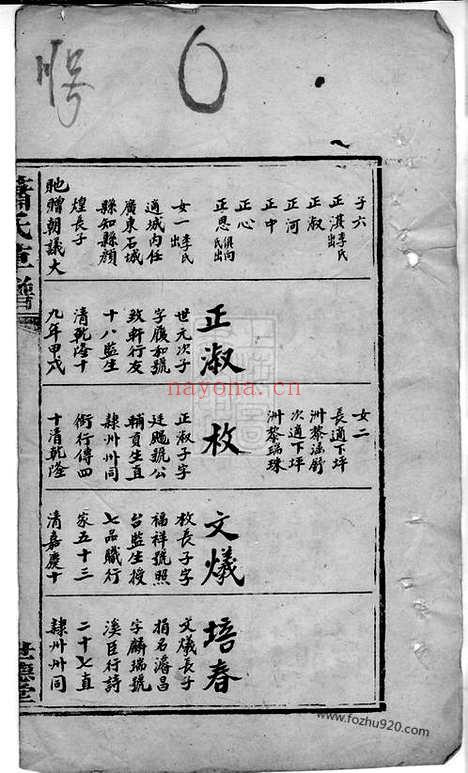 子六
正淇李氏出
正淑
正河
正中
正心
正恩俱向氏出
女一李氏出
適城内任
廣東石城
縣知縣顏
煌長子
貤贈朝議大
正淑
世元次子
字履如號
致軒行友
十八監生
清乾隆十
九年甲戌
女二
長適下坪
洲黎瑶舒
次適下坪
洲黎瑞珠
枚
正淑子字
廷颺號公
輔貢生直
隸州州同
銜行傳四
十清乾隆
文爔
枚長子字
福祥號照
台監生授
七品職行
家五十三
清嘉慶十
培春
文爔長子
捐名濬昌
字麟瑞號
溪臣行詩
二十七直
隸州州同
蕭氏
nayona.cn
www.fozhu920.com